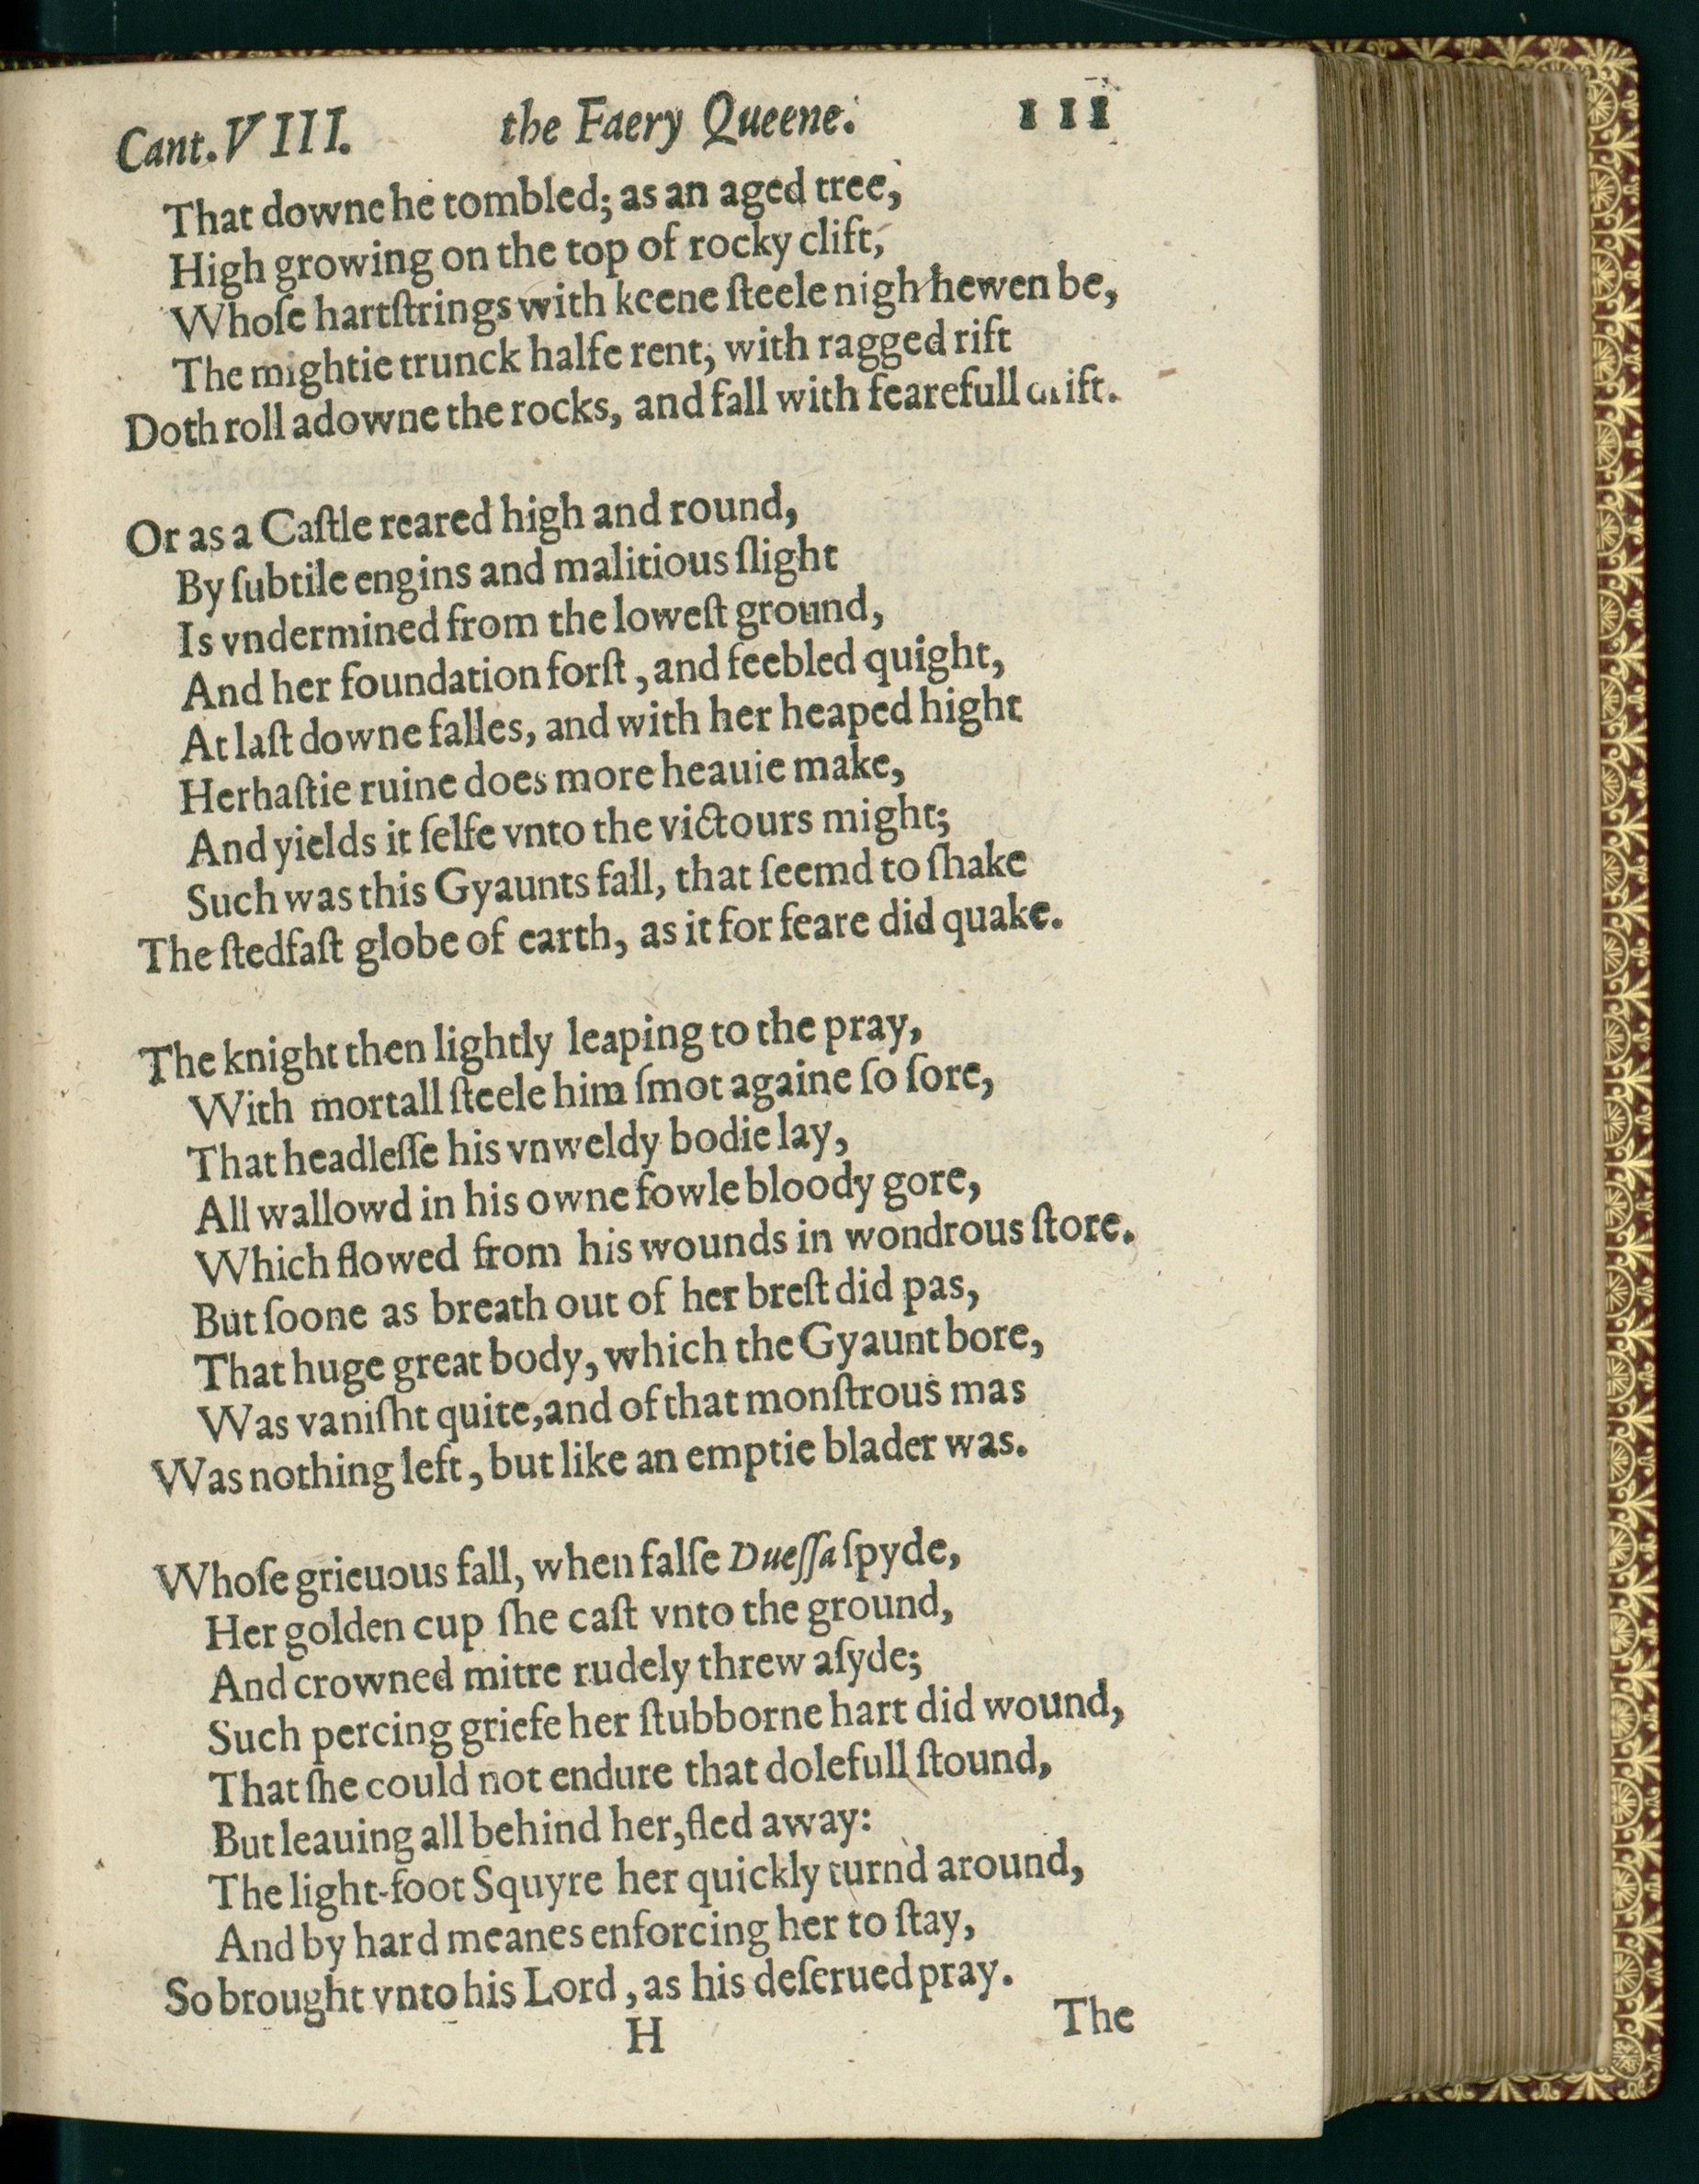 Cant. VIII. the Faery Queene. 111
That downe he tombled; as an aged tree,
High growing on the top of rocky clift,
Whoſe hartſtrings with keene ſteele nigh hewen be,
The mightie trunck halfe rent, with ragged rift
Doth roll adowne the rocks, and fall with fearefull drift.
Or as a Caſtle reared high and round,
By ſubtile engins and malitious ſlight
Is vndermined from the loweſt ground,
And her foundation forſt, and feebled quight,
At laſt downe falles, and with her heaped hight
Her haſtie ruine does more heauie make,
And yields it ſelfe vnto the victours might;
Such was this Gyaunts fall, that ſeemd to ſhake
The ſtedfaſt globe of earth, as it for feare did quake.
The knight then lightly leaping to the pray,
With mortall ſteele him ſmot againe ſo ſore,
That headleſſe his vnweldy bodie lay,
All wallowd in his owne fowle bloody gore,
Which flowed from his wounds in wondrous ſtore.
But ſoone as breath out of her breſt did pas,
That huge great body, which the Gyaunt bore,
Was vaniſht quite, and of that monſtrous mas
Was nothing left, but like an emptie blader was.
Whoſe grieuous fall, when falſe Dueſſa ſpyde,
Her golden cup ſhe caſt vnto the ground,
And crowned mitre rudely threw aſyde;
Such percing griefe her ſtubborne hart did wound,
That ſhe could not endure that dolefull ſtound,
But leauing all behind her, fled away:
The light-foot Squyre her quickly turnd around,
And by hard meanes enforcing her to ſtay,
So brought vnto his Lord, as his deſerued pray.
H The